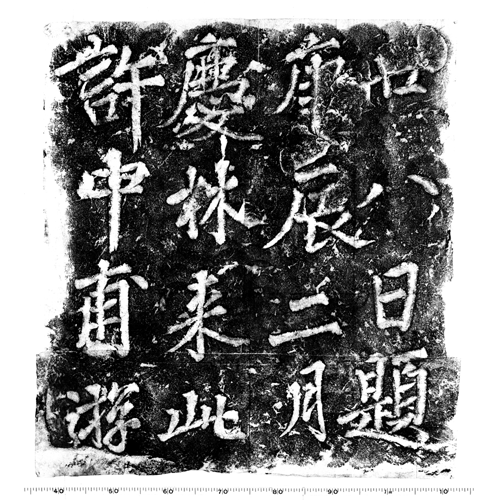 許申甫游
慶來此
庚辰二月
廿八日題